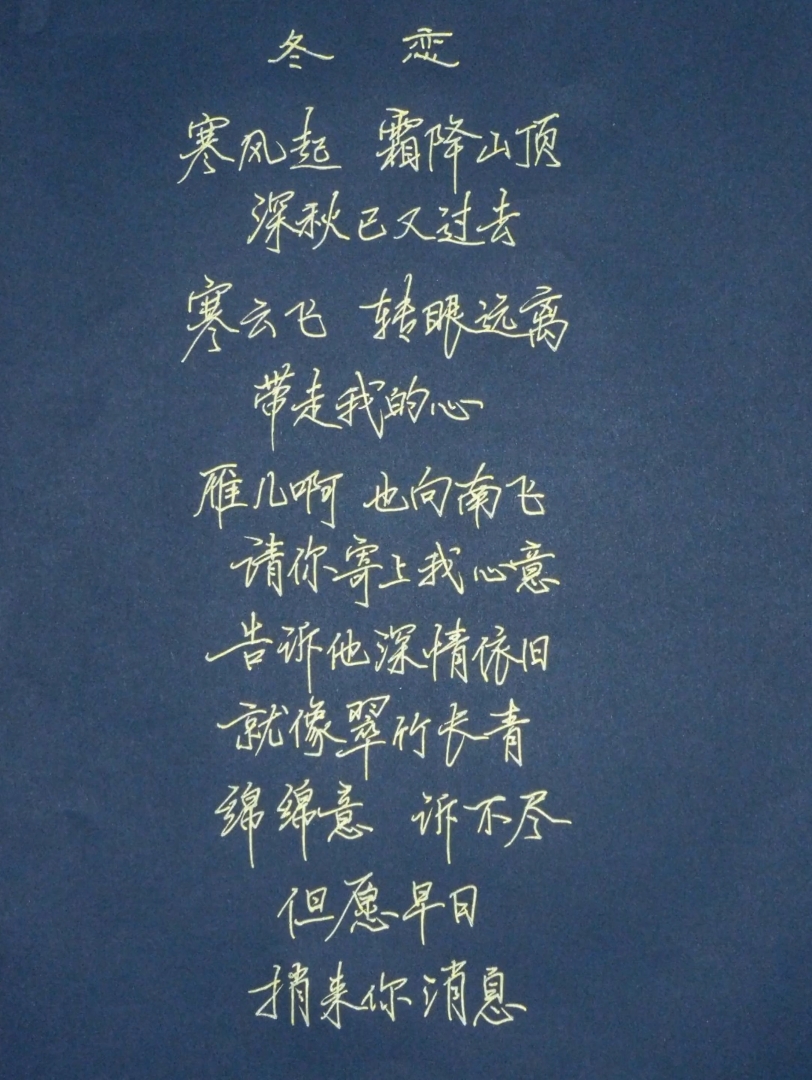 冬 恋
寒风起 霜降山顶
深秋已又过去
寒云飞 转眼远离
带走我的心
雁儿啊 也向南飞
请你寄上我心意
告诉他深情依旧
就像翠竹长青
绵绵意 诉不尽
但愿早日
捎来你消息